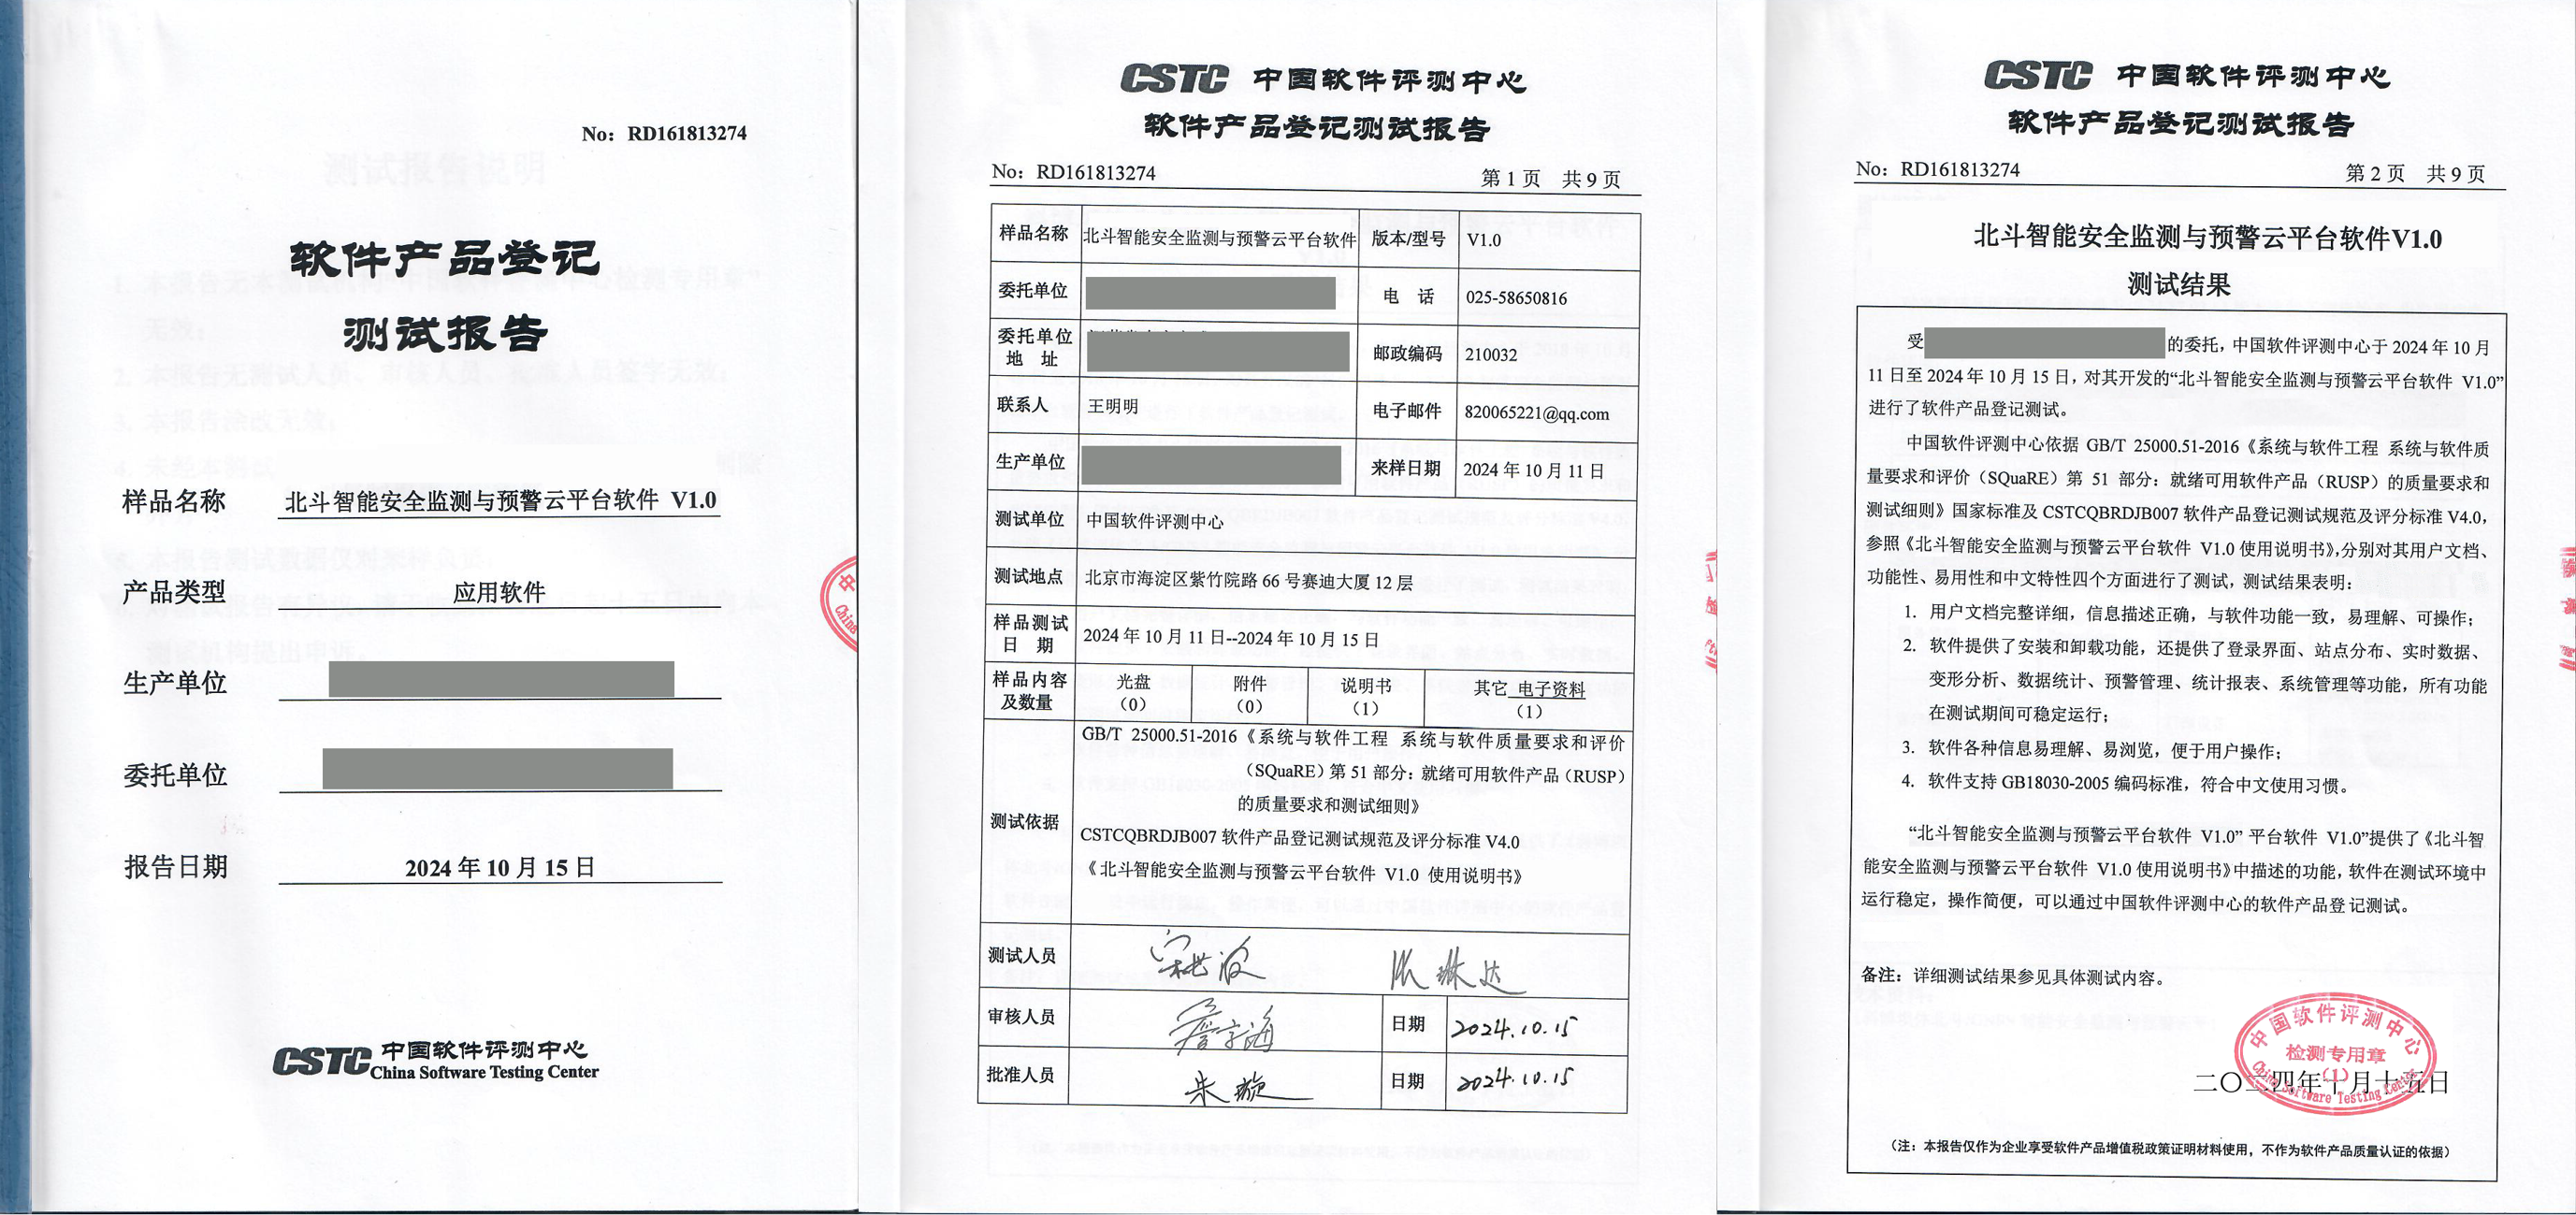 No: RD161813274
软件产品登记
测试报告
样品名称 北斗智能安全监测与预警云平台软件 V1.0
产品类型 应用软件
生产单位
委托单位
报告日期 2024 年 10 月 15 日
CSTC 中国软件评测中心
China Software Testing Center
CSTC 中国软件评测中心
软件产品登记测试报告
No: RD161813274 第 1 页 共 9 页
样品名称 北斗智能安全监测与预警云平台软件 版本/型号 V1.0
委托单位 电 话 025-58650816
委托单位
地 址 邮政编码 210032
联系人 王明明 电子邮件 820065221@qq.com
生产单位 来样日期 2024 年 10 月 11 日
测试单位 中国软件评测中心
测试地点 北京市海淀区紫竹院路 66 号赛迪大厦 12 层
样品测试
日 期 2024 年 10 月 11 日--2024 年 10 月 15 日
样品内容
及数量 光盘
（0） 附件
（0） 说明书
（1） 其它 电子资料
（1）
测试依据
GB/T 25000.51-2016《系统与软件工程 系统与软件质量要求和评价
（SQuaRE）第 51 部分：就绪可用软件产品（RUSP）
的质量要求和测试细则》
CSTCQBRDJB007 软件产品登记测试规范及评分标准 V4.0
《北斗智能安全监测与预警云平台软件 V1.0 使用说明书》
测试人员
审核人员 日期 2024.10.15
批准人员 朱璇 日期 2024.10.15
CSTC 中国软件评测中心
软件产品登记测试报告
No: RD161813274 第 2 页 共 9 页
北斗智能安全监测与预警云平台软件V1.0
测试结果
受 的委托，中国软件评测中心于 2024 年 10 月
11 日至 2024 年 10 月 15 日，对其开发的“北斗智能安全监测与预警云平台软件 V1.0”
进行了软件产品登记测试。
中国软件评测中心依据 GB/T 25000.51-2016《系统与软件工程 系统与软件质
量要求和评价（SQuaRE）第 51 部分：就绪可用软件产品（RUSP）的质量要求和
测试细则》国家标准及 CSTCQBRDJB007 软件产品登记测试规范及评分标准 V4.0，
参照《北斗智能安全监测与预警云平台软件 V1.0 使用说明书》，分别对其用户文档、
功能性、易用性和中文特性四个方面进行了测试，测试结果表明：
1. 用户文档完整详细，信息描述正确，与软件功能一致，易理解、可操作；
2. 软件提供了安装和卸载功能，还提供了登录界面、站点分布、实时数据、
变形分析、数据统计、预警管理、统计报表、系统管理等功能，所有功能
在测试期间可稳定运行；
3. 软件各种信息易理解、易浏览，便于用户操作；
4. 软件支持 GB18030-2005 编码标准，符合中文使用习惯。
“北斗智能安全监测与预警云平台软件 V1.0” 平台软件 V1.0”提供了《北斗智
能安全监测与预警云平台软件 V1.0 使用说明书》中描述的功能，软件在测试环境中
运行稳定，操作简便，可以通过中国软件评测中心的软件产品登记测试。
备注：详细测试结果参见具体测试内容。
中国软件评测中心
检测专用章
（1）
China Software Testing Center
二〇二四年十月十五日
（注：本报告仅作为企业享受软件产品增值税政策证明材料使用，不作为软件产品质量认证的依据）